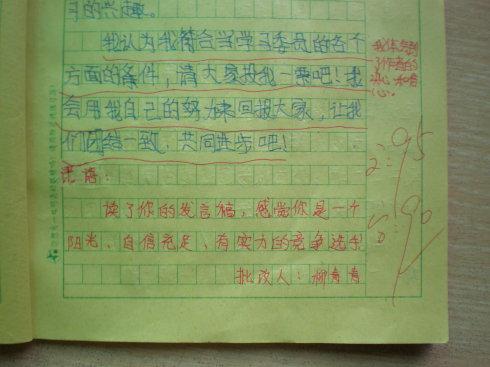 习的兴趣。
我认为我符合当学习委员的各个
方面的条件，请大家投我一票吧！我
会用我自己的努力来回报大家，让我
们团结一致，共同进步吧！
我体会到
了作者的
决心和信
心。
评语：
读了你的发言稿，感觉你是一个
阳光、自信充足、有实力的竞争选手
批改人：柳青青
95
90